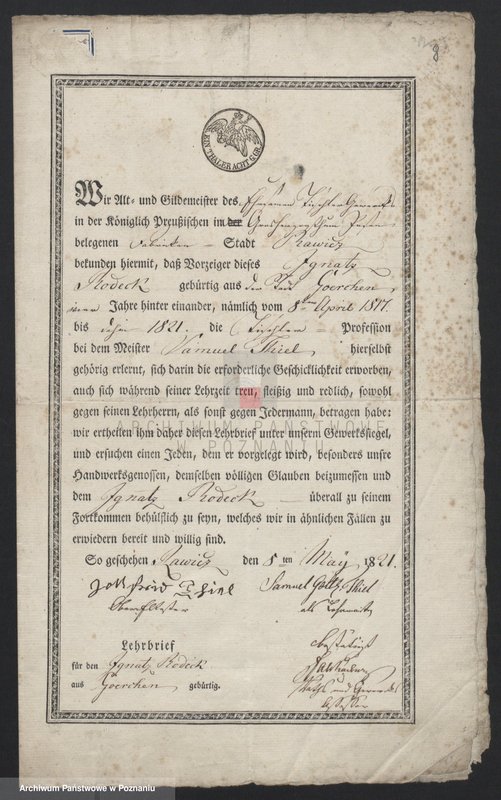 8
EIN THALER ACHT G. GR.
Wir Alt- und Gildemeister des Ehrsamen Tischler Gewerks
in der Königlich Preußischen im der Grosherzogthum Posen
belegenen Stadt Rawicz
bekunden hiermit, daß Vorzeiger dieses Ignatz
Rodeck gebürtig aus der Stadt Goerchen,
vier Jahre hinter einander, nämlich vom 8ten April 1817.
bis dahin 1821. die Tischler Profession
bei dem Meister Samuel Thiel hierselbst
gehörig erlernt, sich darin die erforderliche Geschicklichkeit erworben,
auch sich während seiner Lehrzeit treu, fleißig und redlich, sowohl
gegen seinen Lehrherrn, als sonst gegen Jedermann, betragen habe:
wir ertheilen ihm daher diesen Lehrbrief unter unserm Gewerkssiegel,
ARCHIWUM PAŃSTWOWE
W POZNANIU
und ersuchen einen Jeden, dem er vorgelegt wird, besonders unsre
Handwerksgenossen, demselben völligen Glauben beizumessen und
dem Ignatz Rodeck überall zu seinem
Fortkommen behülflich zu seyn, welches wir in ähnlichen Fällen zu
erwiedern bereit und willig sind.
So geschehen Rawicz den 8ten May 1821.
Gottfried Thiel Samuel Gottl. Thiel
Oberältester als Lehrmeister
Lehrbrief bestätigt
für den Ignatz Rodeck
aus Goerchen gebürtig. Raths und Gewerks
Assessor
Archiwum Państwowe w Poznaniu